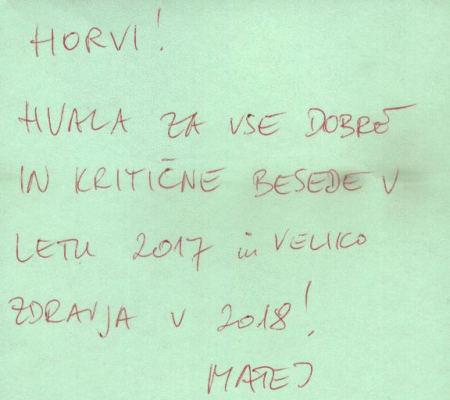 HORVI!
HVALA ZA VSE DOBRE
IN KRITIČNE BESEDE V
LETU 2017 in VELIKO
ZDRAVJA V 2018!
MATEJ